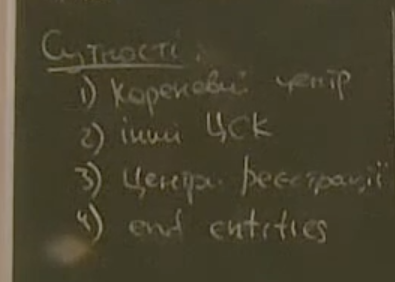 Сутності:
1) Кореневий центр
2) інші ЦСК
3) Центри реєстрації
4) end entities